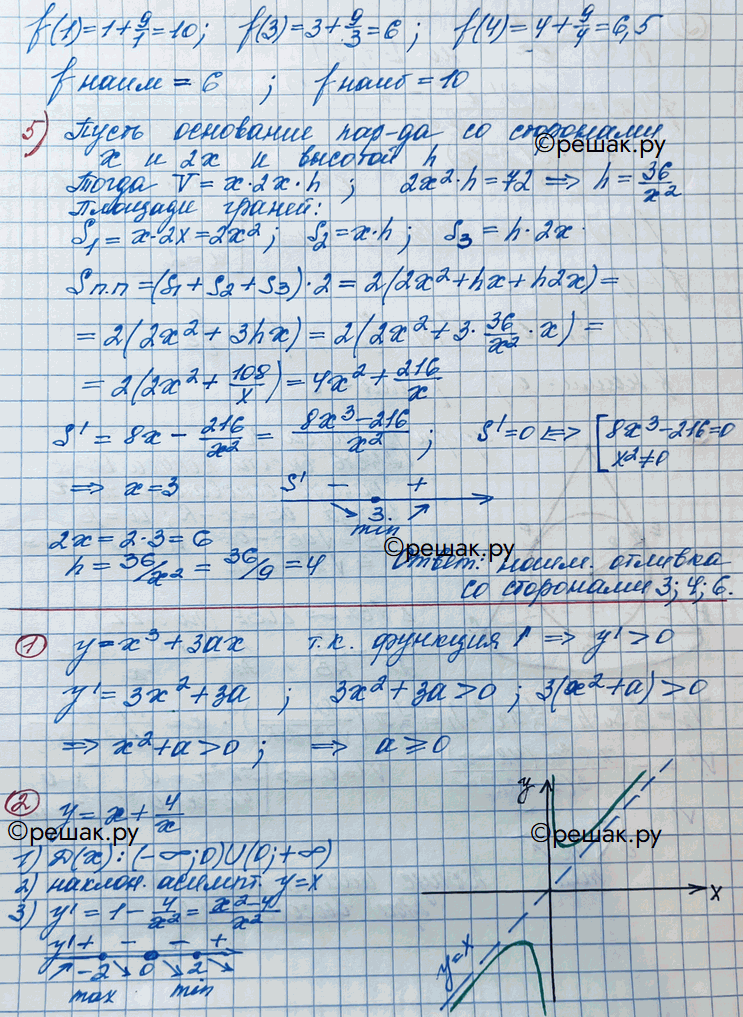 f(1)=1+9/1=10; f(3)=3+9/3=6; f(4)=4+9/4=6,5
f наим = 6 ; f наиб = 10
5) Пусть основание пар-да со сторонами
x и 2x и высотой h
©решак.ру
Тогда V = x·2x·h ; 2x²·h = 72 ⇒ h = 36/x²
Площади граней:
S₁ = x·2x = 2x² ; S₂ = x·h ; S₃ = h·2x
Sп.п = (S₁ + S₂ + S₃)·2 = 2(2x² + hx + h2x) =
= 2(2x² + 3hx) = 2(2x² + 3·36/x²·x) =
= 2(2x² + 108/x) = 4x² + 216/x
S' = 8x − 216/x² = 8x³−216/x² ; S'=0 ⇔ [8x³−216=0
x²≠0
⇒ x=3 S' − +
3
min
2x = 2·3 = 6
©решак.ру
h = 36/x² = 36/9 = 4 Ответ: наим. отливка
со сторонами 3; 4; 6.
1 y = x³ + 3ax т.к. функция ↑ ⇒ y' > 0
y' = 3x² + 3a ; 3x² + 3a > 0 ; 3(x² + a) > 0
⇒ x² + a > 0 ; ⇒ a ⩾ 0
2 y = x + 4/x
©решак.ру
1) D(x): (−∞;0)∪(0;+∞)
2) наклон. асимпт. y=x
3) y' = 1 − 4/x² = x²−4/x²
y' + − − +
−2 0 2
max min
y
©решак.ру
x
y=x